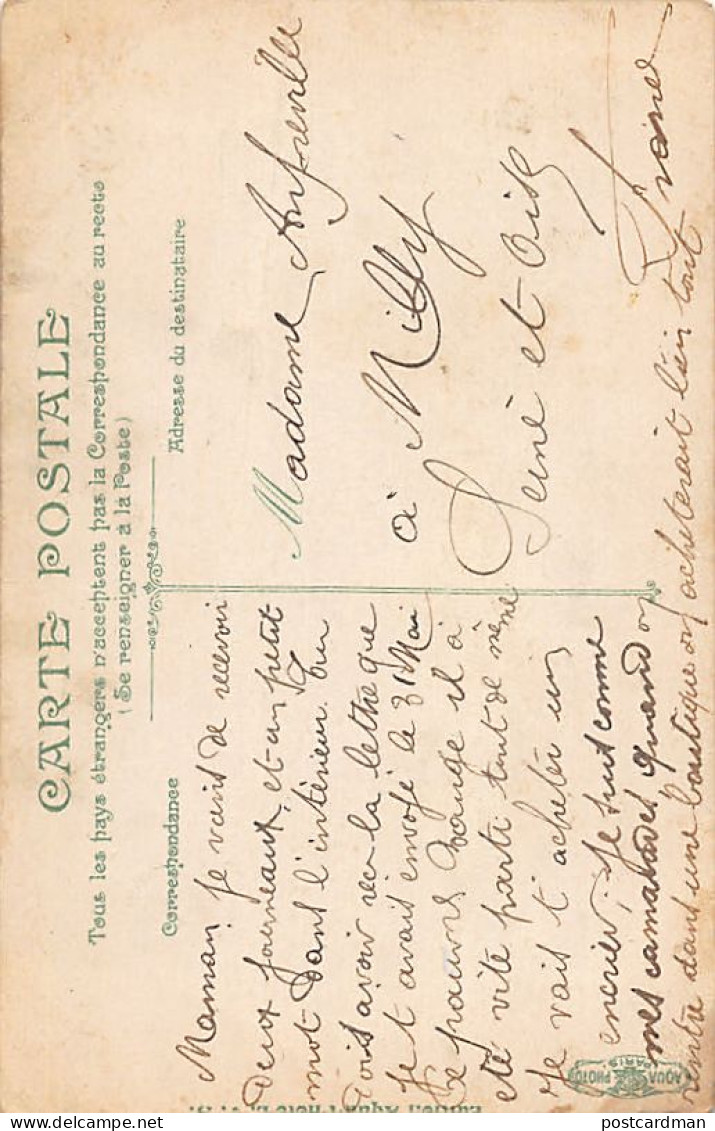 CARTE POSTALE
Tous les pays étrangers n'acceptent pas la Correspondance au recto
(Se renseigner à la Poste)
Correspondance
Adresse du destinataire
Maman, Je vient de recevoir
deux journeaux, et un petit
mot dans l'intérieur. Tu
dois avoir reçu la lettre que
Je t avait envoyé le 31 Mai
Ce pauvre il à
été vite parti tout de même
Je vait t acheter un
encrier, Je suit comme
mes camarades quand on
rentre dans une boutique on acheterait bien tout
Madame Anfreville
à Milly
Seine et Oise
AQUA PHOTO
PARIS
postcardman